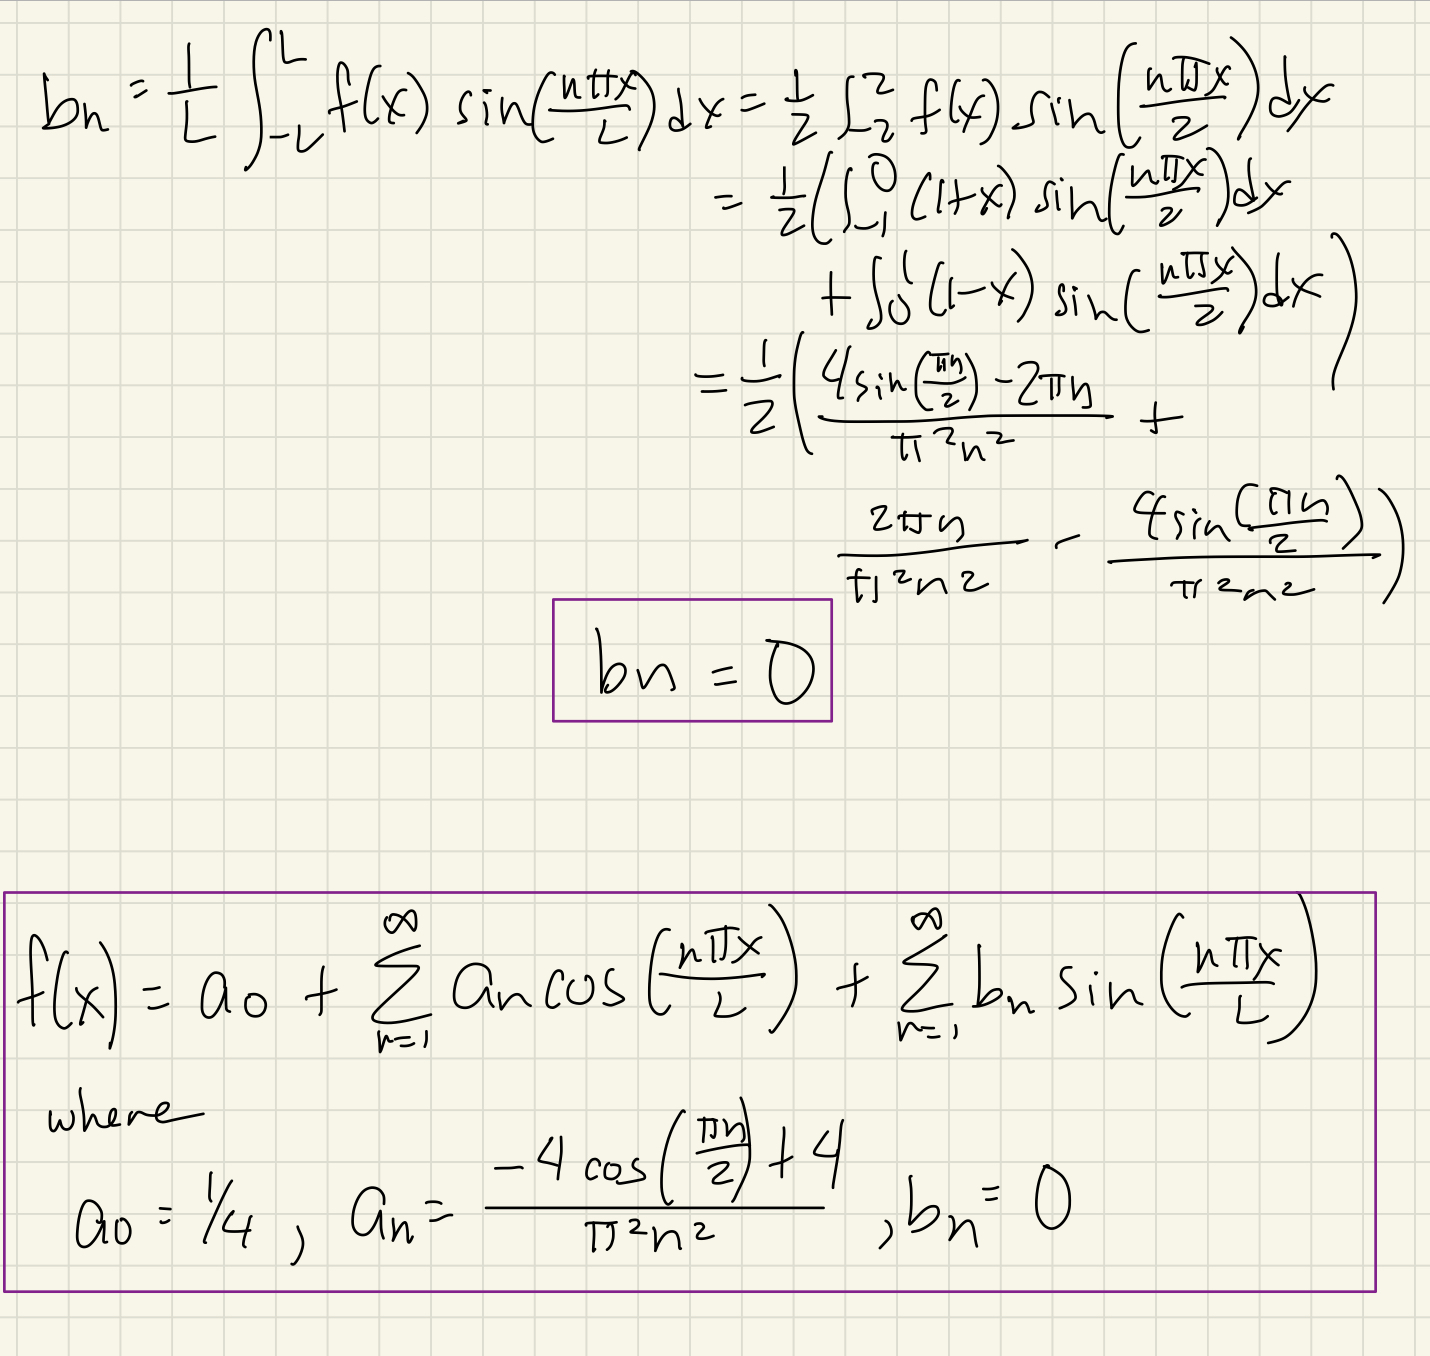 bn = 1/L ∫_{-L}^{L} f(x) sin(nπx/L) dx = 1/2 ∫_{-2}^{2} f(x) sin(nπx/2) dx
= 1/2 (∫_{-1}^{0} (1+x) sin(nπx/2) dx
+ ∫_{0}^{1} (1-x) sin(nπx/2) dx )
= 1/2 ( (4 sin(πn/2) - 2πn)/(π²n²) +
2πn/(π²n²) - 4 sin(πn/2)/(π²n²) )
bn = 0
f(x) = a0 + ∑_{n=1}^{∞} an cos(nπx/L) + ∑_{n=1}^{∞} bn sin(nπx/L)
where
a0 = 1/4, an = (-4 cos(πn/2) + 4)/(π²n²), bn = 0